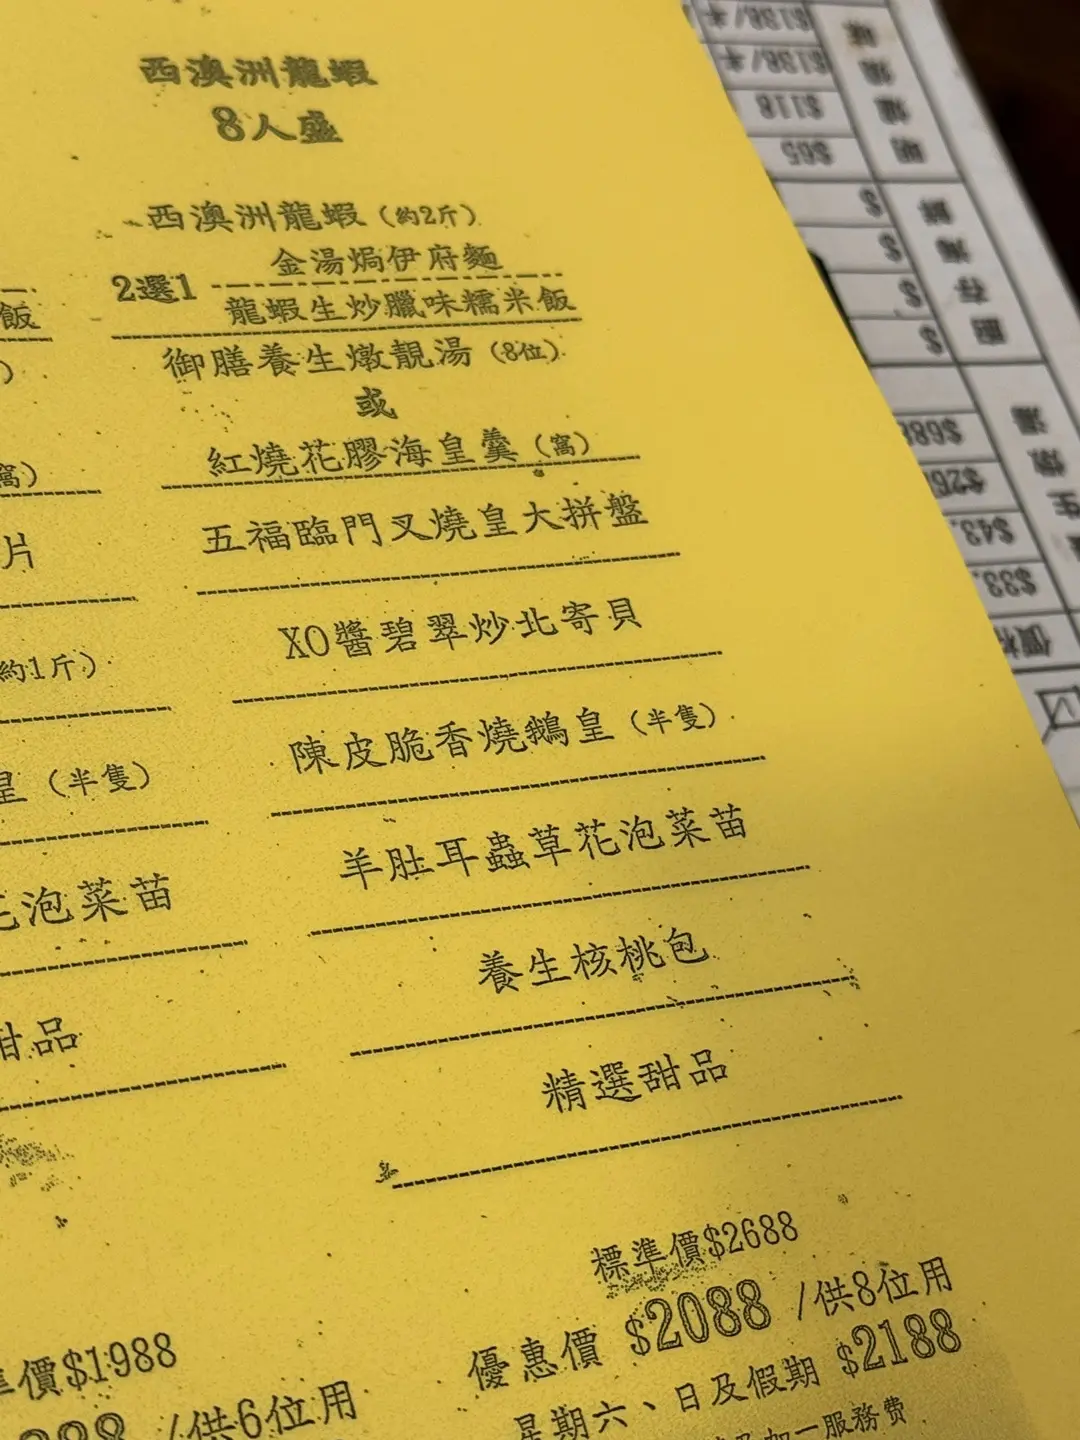 西澳洲龍蝦
8人盛
西澳洲龍蝦（約2斤）
2選1
金湯焗伊府麵
龍蝦生炒臘味糯米飯
御膳養生燉靚湯（8位）
或
紅燒花膠海皇羹（窩）
五福臨門叉燒皇大拼盤
XO醬碧翠炒北寄貝
陳皮脆香燒鵝皇（半隻）
羊肚耳蟲草花泡菜苗
養生核桃包
精選甜品
標準價$2688
優惠價 $2088 /供8位用
星期六、日及假期 $2188
加一服務費
飯
）
窩）
片
約1斤）
皇（半隻）
花泡菜苗
甜品
準價$1988
/供6位用
$138/半
$138/半
$118
$65
$
$
$
$
$688
$26
$43.
$33.
價格